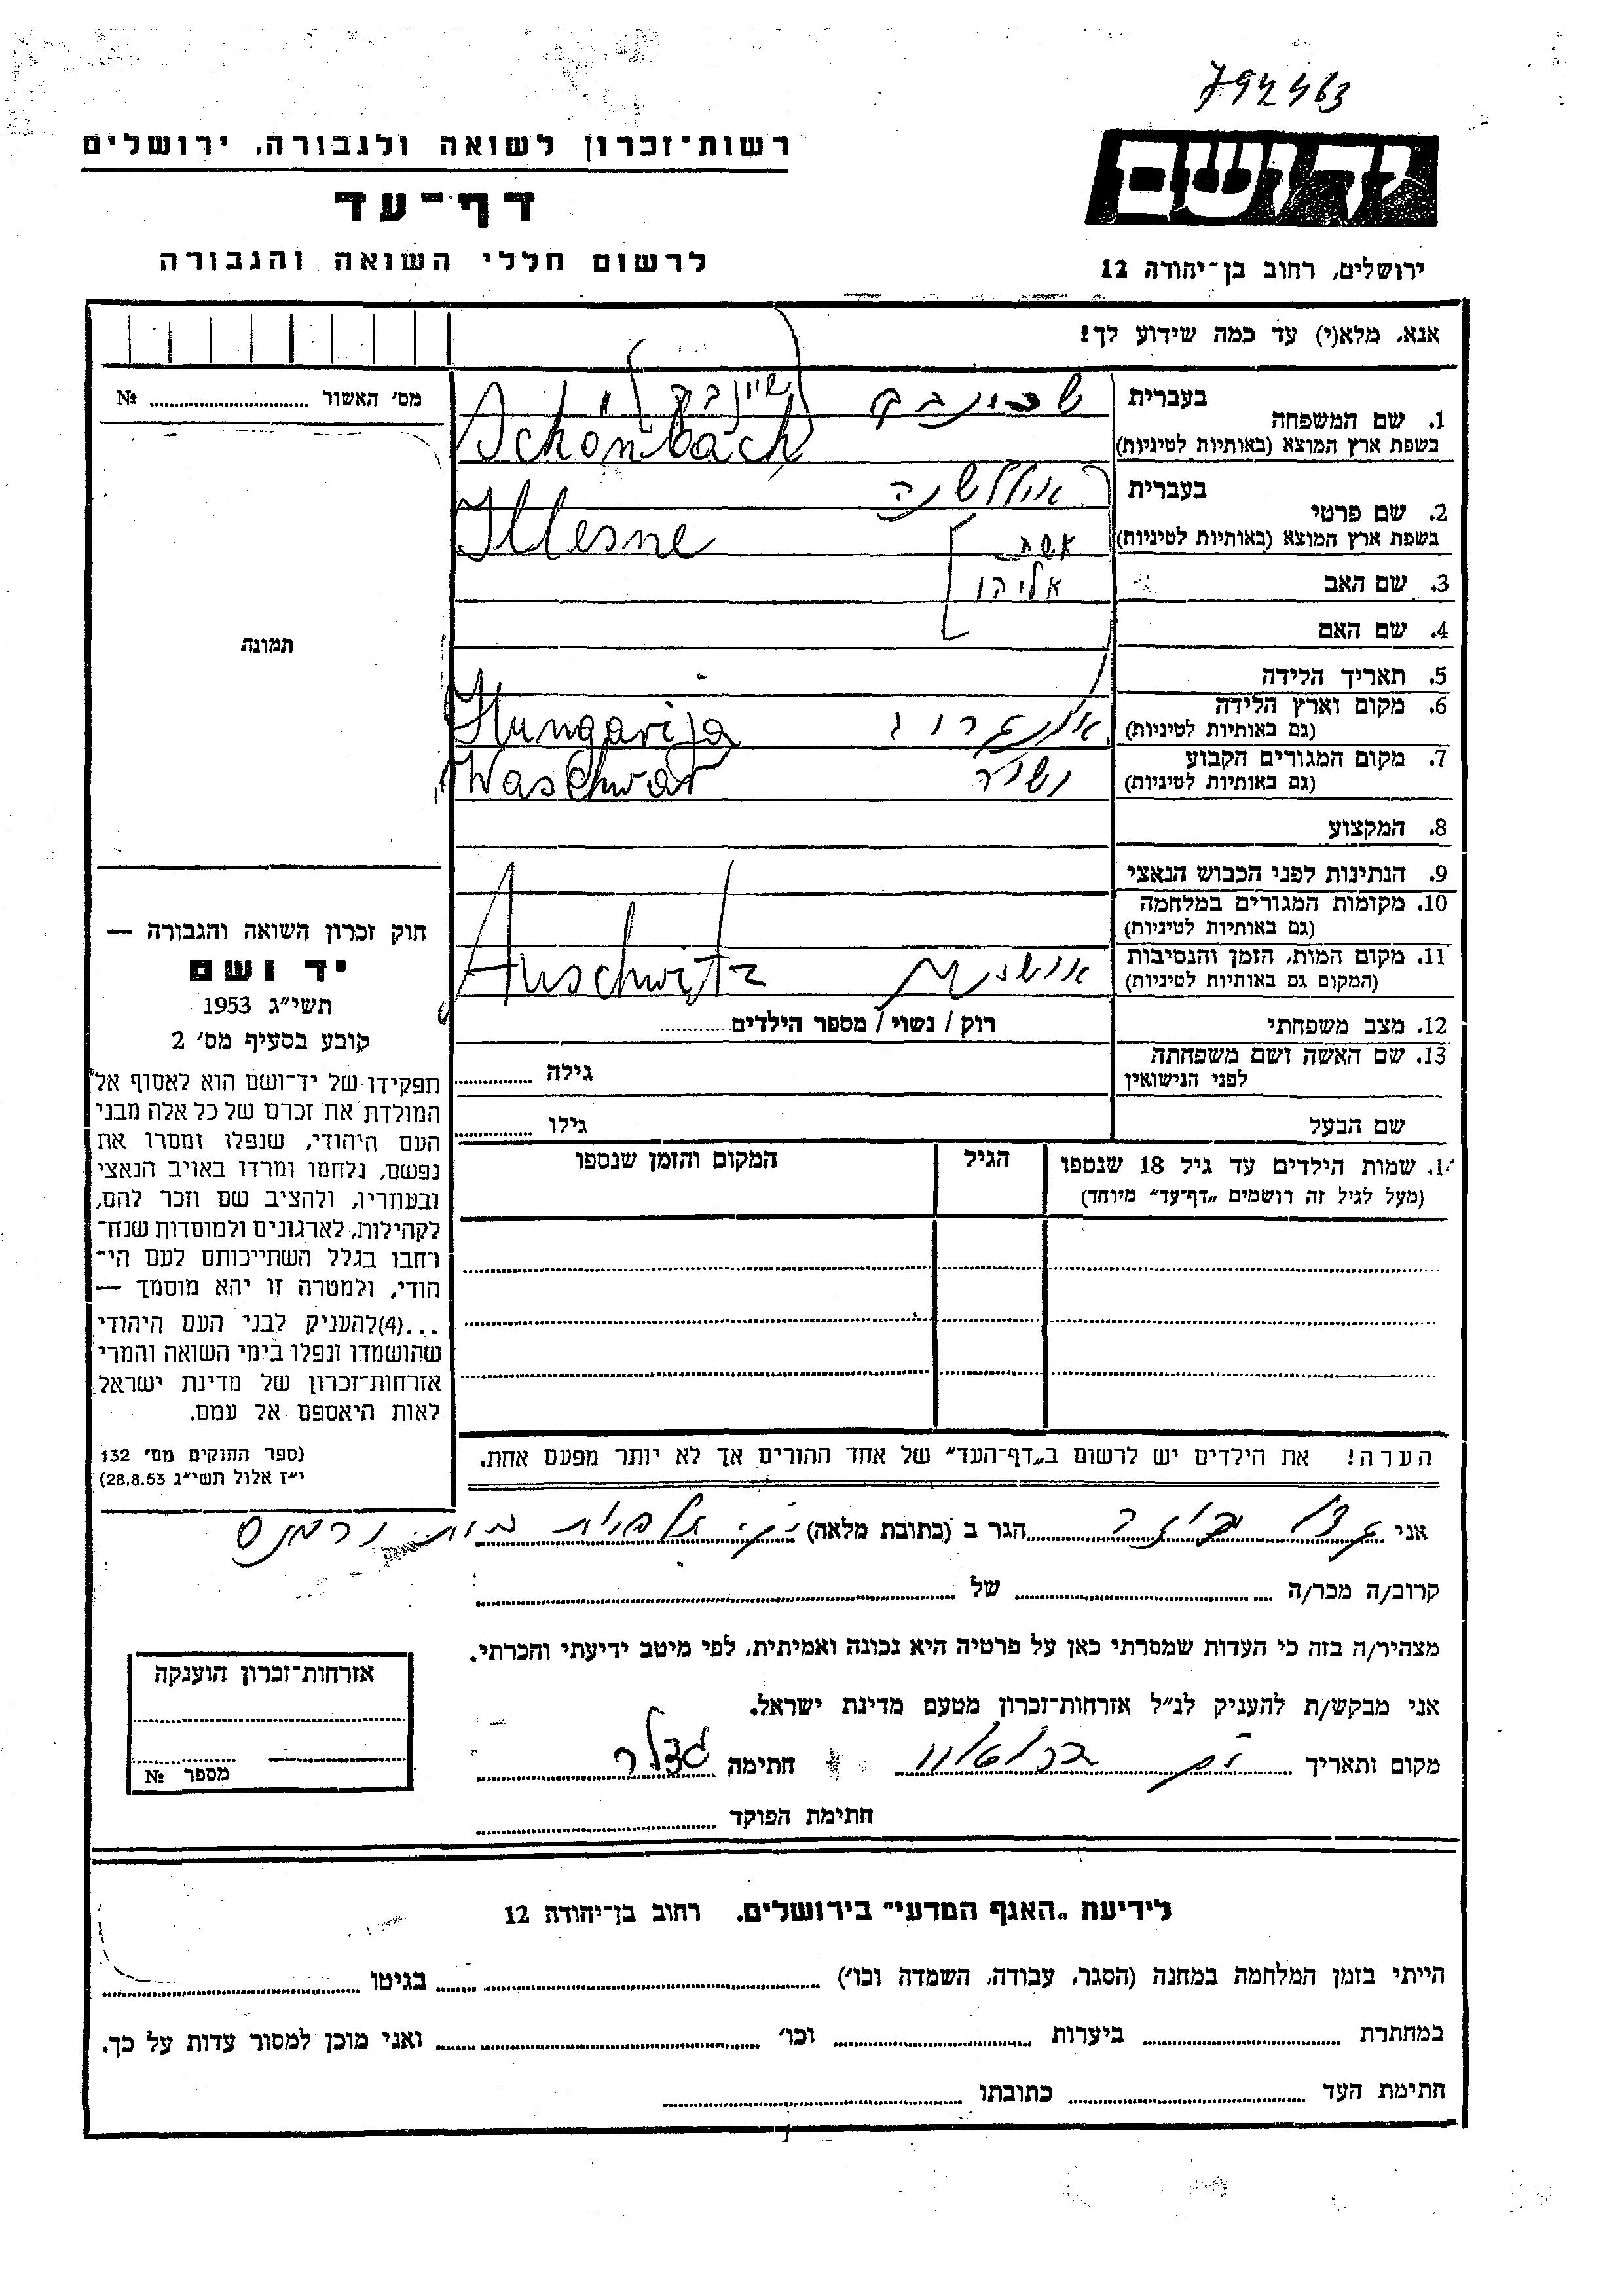 794463
רשות־זכרון לשואה ולגבורה, ירושלים
יד ושם
דף־עד
לרשום חללי השואה והגבורה
ירושלים, רחוב בן־יהודה 12
אנא, מלא(י) עד כמה שידוע לך!
מס׳ האשור № 
1. שם המשפחה בעברית
בשפת ארץ המוצא (באותיות לטיניות) Schönbach
2. שם פרטי בעברית אילשנה
בשפת ארץ המוצא (באותיות לטיניות) Illesne אשת
3. שם האב אליהו
4. שם האם
תמונה
5. תאריך הלידה
6. מקום וארץ הלידה
(גם באותיות לטיניות) Hungarija
7. מקום המגורים הקבוע
(גם באותיות לטיניות) Waschwar
8. המקצוע
9. הנתינות לפני הכבוש הנאצי
10. מקומות המגורים במלחמה
(גם באותיות לטיניות)
11. מקום המות, הזמן והנסיבות
(המקום גם באותיות לטיניות) Auschwitz
12. מצב משפחתי רוק / נשוי / מספר הילדים
13. שם האשה ושם משפחתה
לפני הנישואין גילה
שם הבעל גילו
14. שמות הילדים עד גיל 18 שנספו הגיל המקום והזמן שנספו
(מעל לגיל זה רושמים „דף־עד״ מיוחד)
חוק זכרון השואה והגבורה —
יד ושם
תשי״ג 1953
קובע בסעיף מס׳ 2
תפקידו של יד־ושם הוא לאסוף אל
המולדת את זכרם של כל אלה מבני
העם היהודי, שנפלו ומסרו את
נפשם, נלחמו ומרדו באויב הנאצי
ובעוזריו, ולהציב שם וזכר להם,
לקהילות, לארגונים ולמוסדות שנח־
רחבו בגלל השתייכותם לעם הי־
הודי, ולמטרה זו יהא מוסמך —
...(4)להעניק לבני העם היהודי
שהושמדו ונפלו בימי השואה והמרי
אזרחות־זכרון של מדינת ישראל
לאות היאספם אל עמם.
(ספר החוקים מס׳ 132
י״ז אלול תשי״ג 28.8.53)
הערה! את הילדים יש לרשום ב„דף־העד״ של אחד ההורים אך לא יותר מפעם אחת.
אני הגר ב (כתובת מלאה)
קרוב/ה מכר/ה של
מצהיר/ה בזה כי העדות שמסרתי כאן על פרטיה היא נכונה ואמיתית, לפי מיטב ידיעתי והכרתי.
אני מבקש/ת להעניק לנ״ל אזרחות־זכרון מטעם מדינת ישראל.
מקום ותאריך חתימה
חתימת הפוקד
אזרחות־זכרון הוענקה
מספר №
לידיעת „האגף המדעי״ בירושלים, רחוב בן־יהודה 12
הייתי בזמן המלחמה במחנה (הסגר, עבודה, השמדה וכו׳) בגיטו
במחתרת ביערות וכו׳ ואני מוכן למסור עדות על כך.
חתימת העד כתובתו